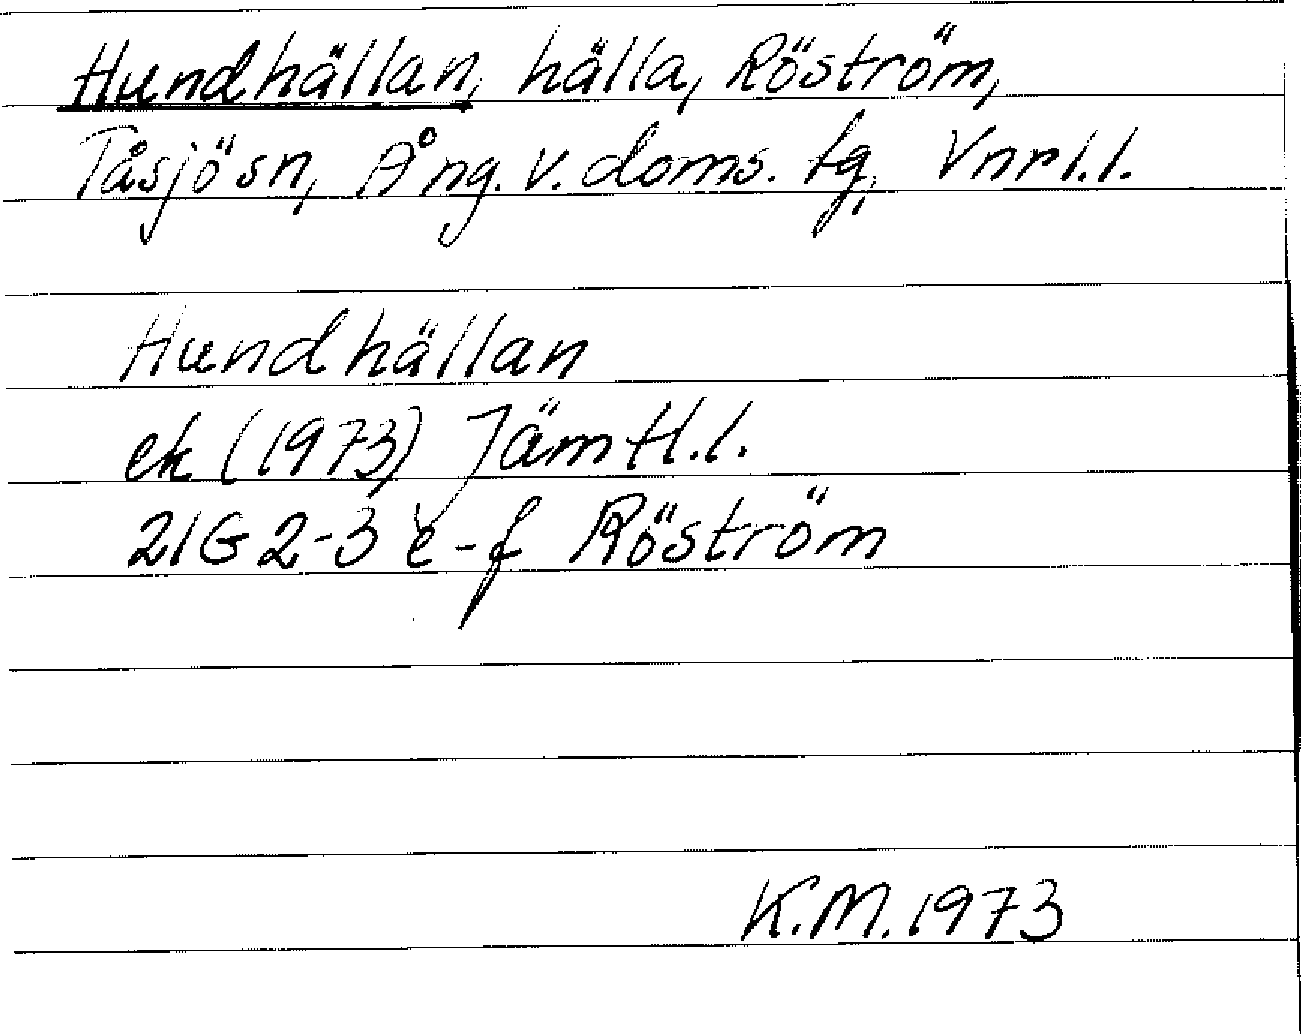 Hundhällan, hälla, Röström,
Tåsjösn, Ång. v. doms. tg, Vnrl.l.
Hundhällan
ek (1973) Jämtl.l.
21G 2-3 e-f Röström
K.M. 1973